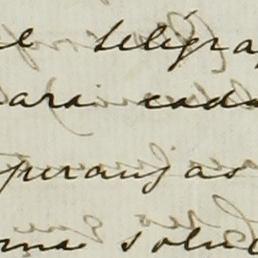 el telégra
ara cada
peranzas
ma soluc